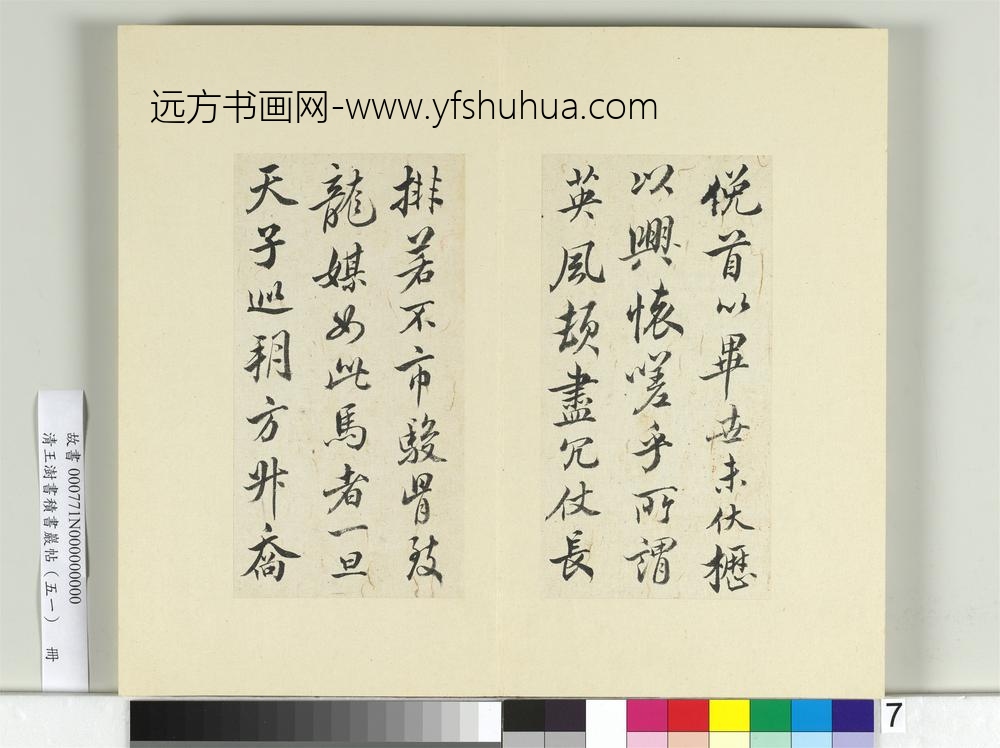 远方书画网-www.yfshuhua.com
俛首以畢世未伏櫪
以興懷嗟乎所謂
英風頓盡冗仗長
排若不市駿骨致
龍媒如此馬者一旦
天子巡朔方升喬
故書 000771N000000000
清王澍書積書巖帖（五一） 冊
7